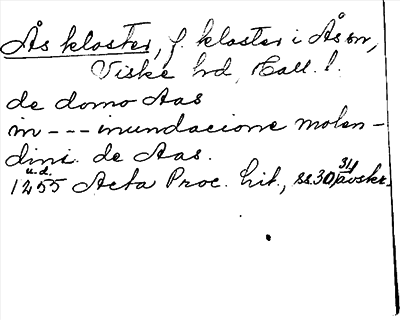 Ås kloster, f. kloster i Ås sn,
Viske hd, Hall. l.
de domo Aas
in --- inundacione molen-
dini de Aas.
u.d.
1255 Acta Proc. lit., ss. 30, 31 avskr.